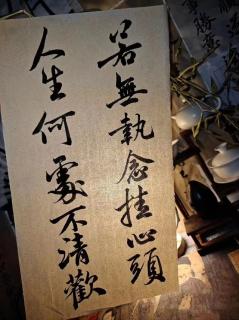 若無執念挂心頭
人生何處不清歡